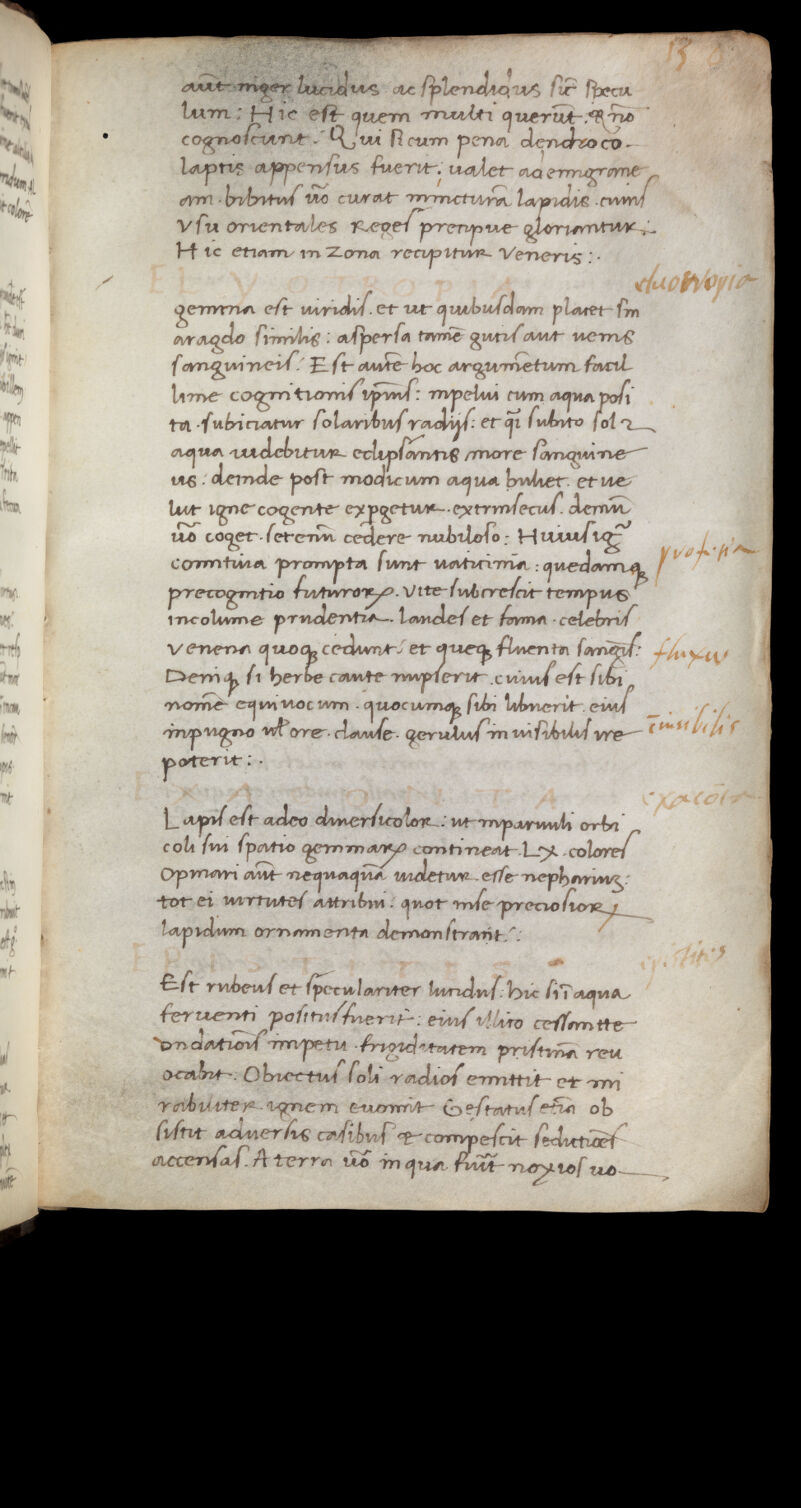 13
aut̄ niger lucidus ac splendidus sic̄ specu
lum: Hic est quem multi querūt. & nō
cognoscunt. Qui si cum pena dendroco-
laptis appensus fuerit; ualet ad emigrane
am. bibitus ūo curat mincturā lapidis. cuius
Vsu orientales Reges precipue gloriantur;
Hic etiam in zona recipitur Veneris:.
ELYOTROPIA
eluotropia
gemma est uiridis. et ut quibusdam placet sm
aragdo similis: aspersa tamē gutis aut uenis
sanguineis. Est autē hoc argumētum facil
lime cognitionis ip̄ius: in pelui cum aqua posi
ta. subiciatur solaribus radijs: et q̄i subito sol &
aqua uidebitur eclipsantis more sanguine
us: deinde post modicum aqua buliet. et ue
lut igne cogente exp̱getur. extrinsecus. demū
ūo coget. serenū cedere nubiloso: Huius ig̃
comitiua prompta sunt uaticinia: quedamq̨
precognitio futuroꝝ. Vite subcrescit tempus
incolume prudentia. laudes et fama. celebris
Venena quoq̨ cedunt. et queq̨ fluenta sanḡs:
fluxu
Deniq̨ si herbe caute nupserit. cuius est sibi
nomē equiuocum. quocumq̨ sibi libuerit. eius
in pugno ul̄ ore. clause. gerulus in uisibilis ire
poterit:.
EXACOLITA
Lapis est adeo diuersicolor: ut in paruuli orbi
coli sui spatio gemmaꝝ contineat. LX. colores
Opinari aūt nequaquā uidetur. esse nepharium:
tot ei uirtutes attribui: quot in se preciosioꝝ
lapidum ornamenta demonstrant:.
Est rubeus et speculariter lucidus: hic si ī aqua
feruenti positus fuerit: eius illico cessante
ondatiōis impetu. frigiditatem pristinā reu
ocabit. Obiectus soli radios emittit et mi
rabiliter ignem euomit Gestatus etiā ob
sistit aduersis casibus & compescit seditiōes
accensas. A terra ūo in qua fuīt noxios uo